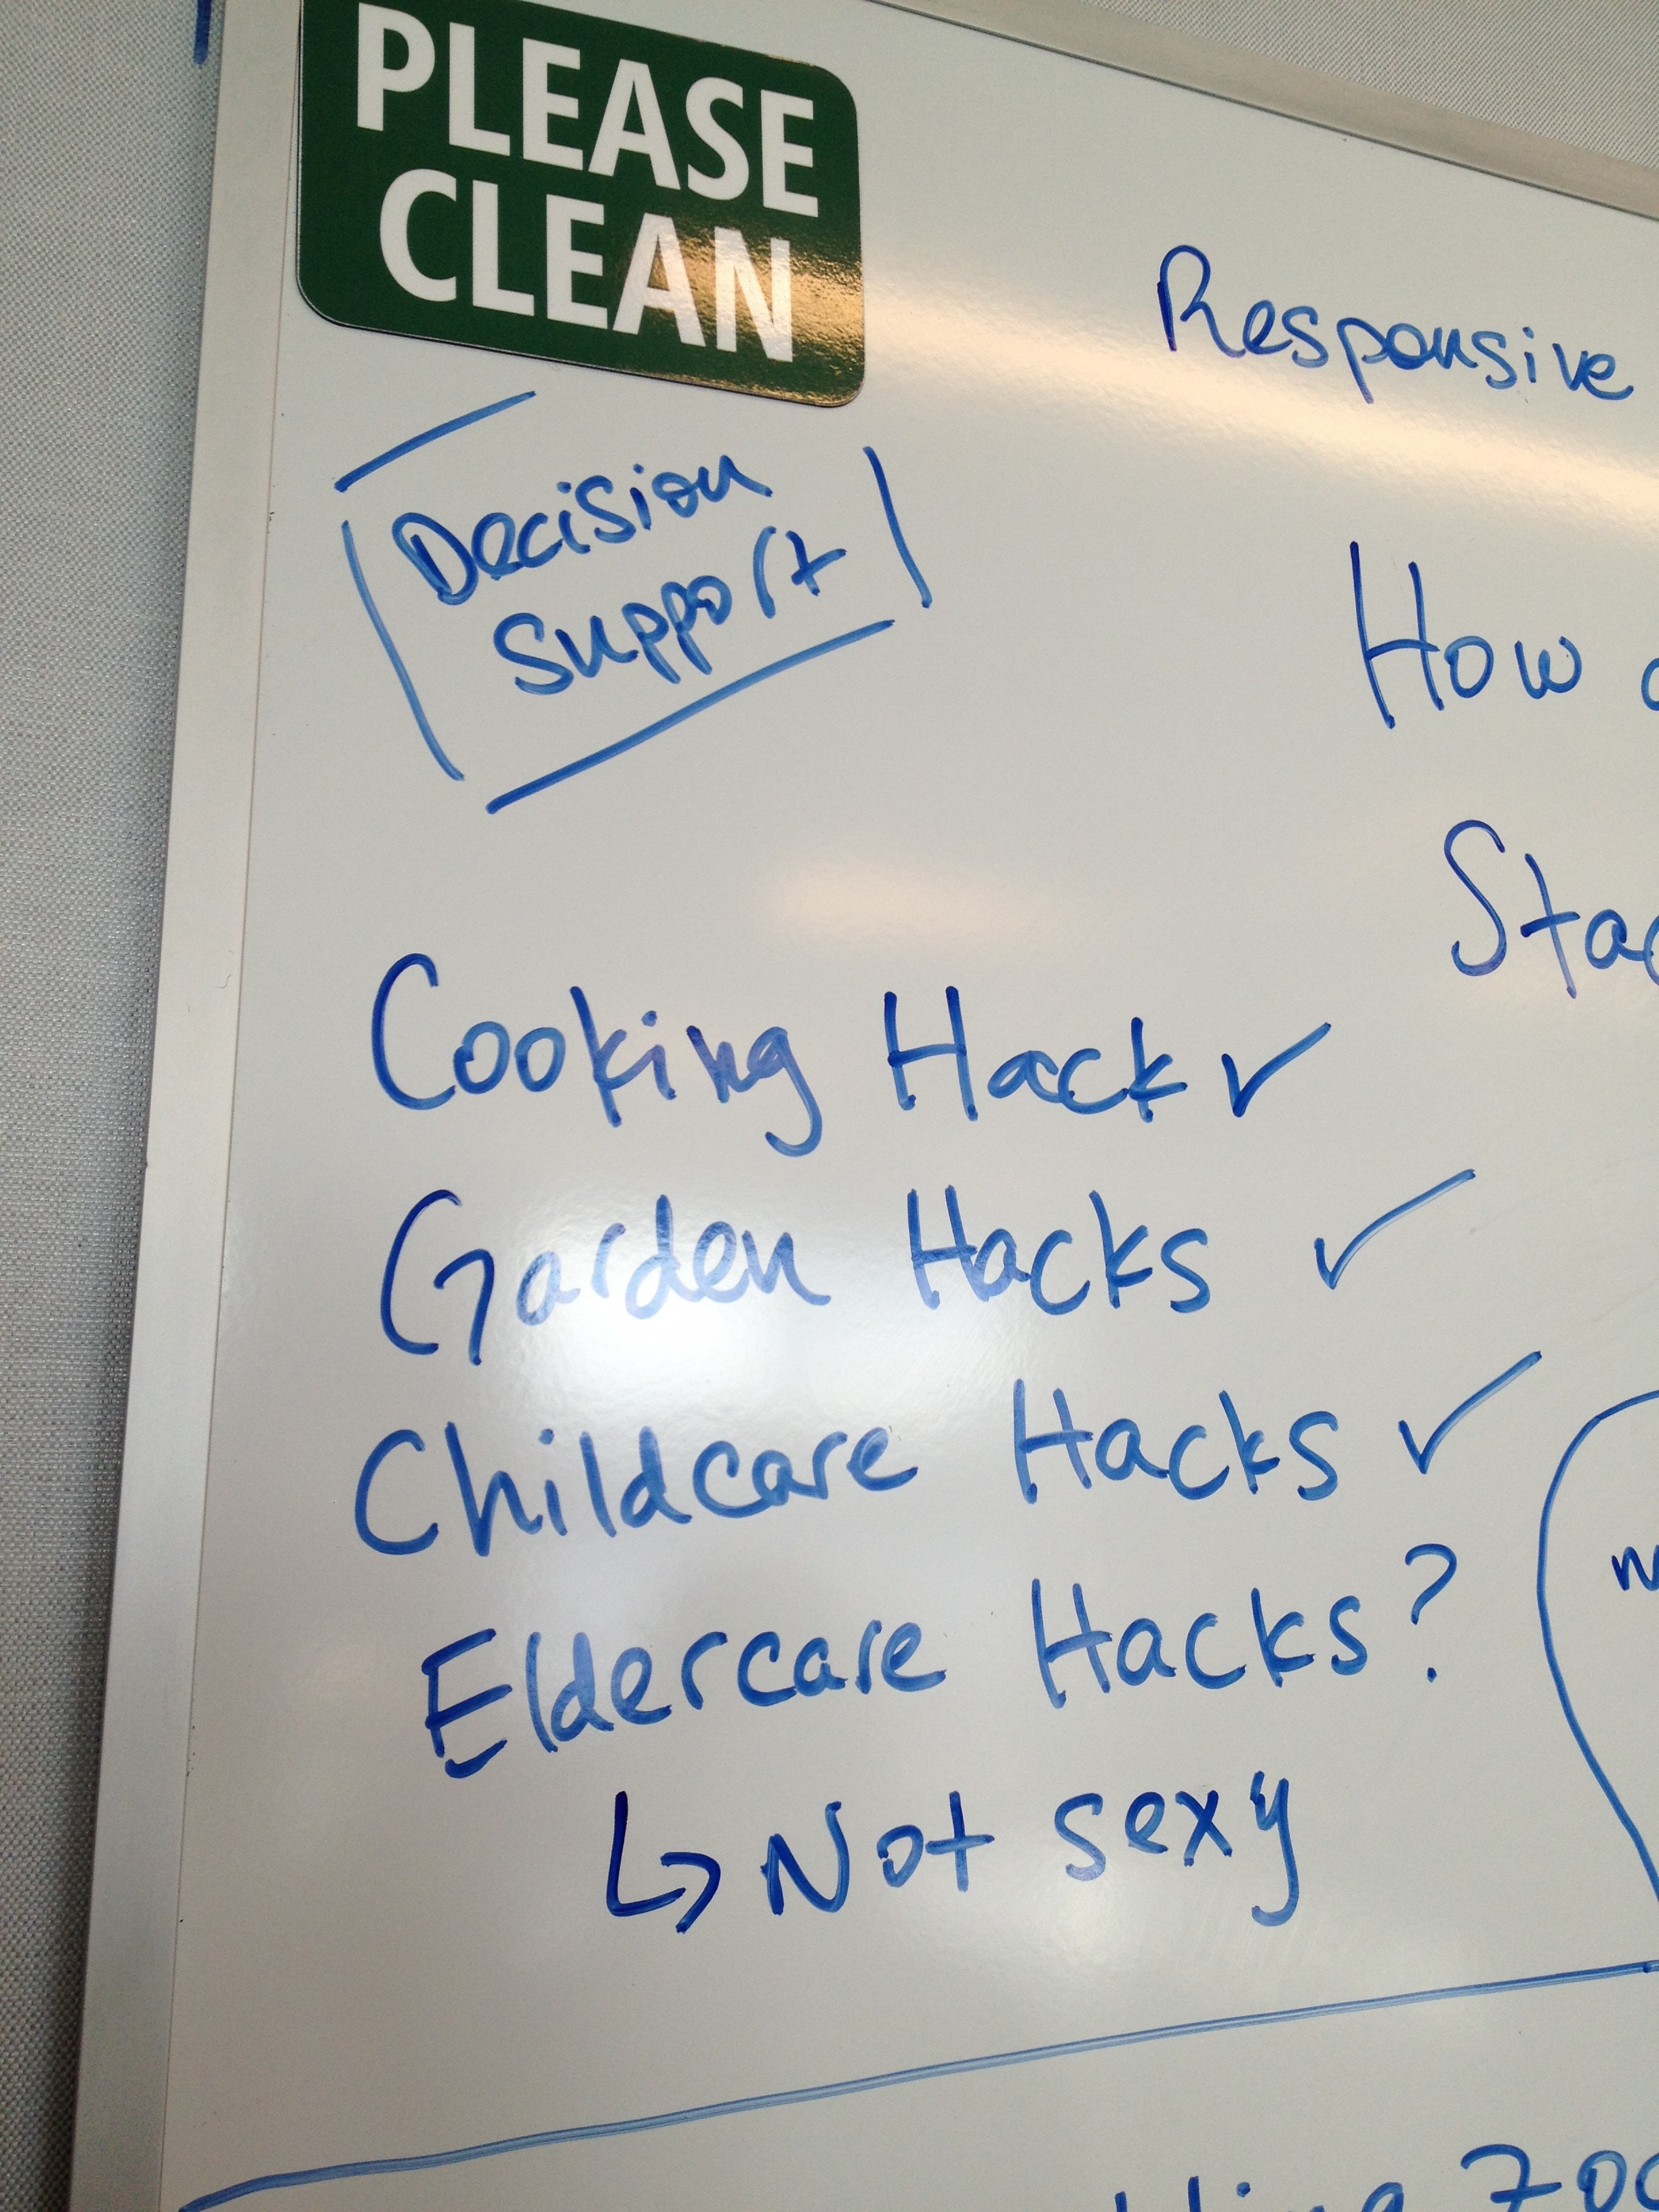 PLEASE
CLEAN
Responsive
Decision
Support
How
Cooking Hack ✓
Garden Hacks ✓
Childcare Hacks ✓
Eldercare Hacks?
↳ Not sexy